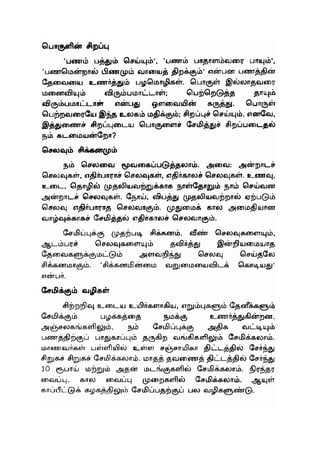 பொருளின் சிறப்பு
'பணம் பத்தும் செய்யும்', 'பணம் பாதாளம்வரை பாயும்',
'பணமென்றால் பிணமும் வாயைத் திறக்கும்' என்பன பணத்தின்
தேவையை உணர்த்தும் பழமொழிகள். பொருள் இல்லாதவரை
மனைவியும் விரும்பமாட்டாள்; பெற்றெடுத்த தாயும்
விரும்பமாட்டாள் என்பது ஔவையின் கருத்து. பொருள்
பெற்றவரையே இந்த உலகம் மதிக்கும்; சிறப்புச் செய்யும். எனவே,
இத்துணைச் சிறப்புடைய பொருளைச் சேமித்துச் சிறப்படைதல்
நம் கடமையன்றோ?
செலவும் சிக்கனமும்
நம் செலவை மூவகைப்படுத்தலாம். அவை: அன்றாடச்
செலவுகள், எதிர்பாராச் செலவுகள், எதிர்காலச் செலவுகள். உணவு,
உடை, தொழில் முதலியவற்றுக்காக நாள்தோறும் நாம் செய்வன
அன்றாடச் செலவுகள். நோய், விபத்து முதலியவற்றால் ஏற்படும்
செலவு எதிர்பாராத செலவாகும். முதுமைக் கால அமைதியான
வாழ்வுக்காகச் சேமித்தல் எதிர்காலச் செலவாகும்.
சேமிப்புக்கு முதற்படி சிக்கனம். வீண் செலவுகளையும்,
ஆடம்பரச் செலவுகளையும் தவிர்த்து இன்றியமையாத
தேவைகளுக்குமட்டும் அளவறிந்து செலவு செய்தலே
சிக்கனமாகும். 'சிக்கனமின்மை வறுமையைவிடக் கொடியது'
என்பர்.
சேமிக்கும் வழிகள்
சிற்றறிவு உடைய உயிர்களாகிய, எறும்புகளும் தேனீக்களும்
சேமிக்கும் பழக்கத்தை நமக்கு உணர்த்துகின்றன.
அஞ்சலகங்களிலும், நம் சேமிப்புக்கு அதிக வட்டியும்
பணத்திற்குப் பாதுகாப்பும் தருகிற வங்கிகளிலும் சேமிக்கலாம்.
மாணவர்கள் பள்ளியில் உள்ள சஞ்சாயிகா திட்டத்தில் சேர்ந்து
சிறுகச் சிறுகச் சேமிக்கலாம். மாதத் தவணைத் திட்டத்தில் சேர்ந்து
10 ரூபாய் மற்றும் அதன் மடங்குகளில் சேமிக்கலாம். நிரந்தர
வைப்பு, கால வைப்பு முறைகளில் சேமிக்கலாம். ஆயுள்
காப்பீட்டுக் கழகத்திலும் சேமிப்பதற்குப் பல வழிகளுண்டு.